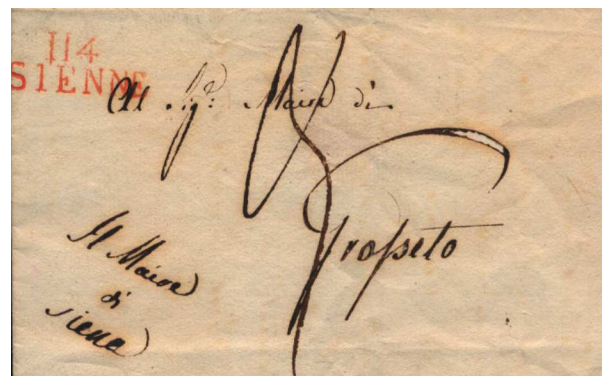 114
SIENNE
Al Sigr. Maire di
Grosseto
Il Maire
di
Siena